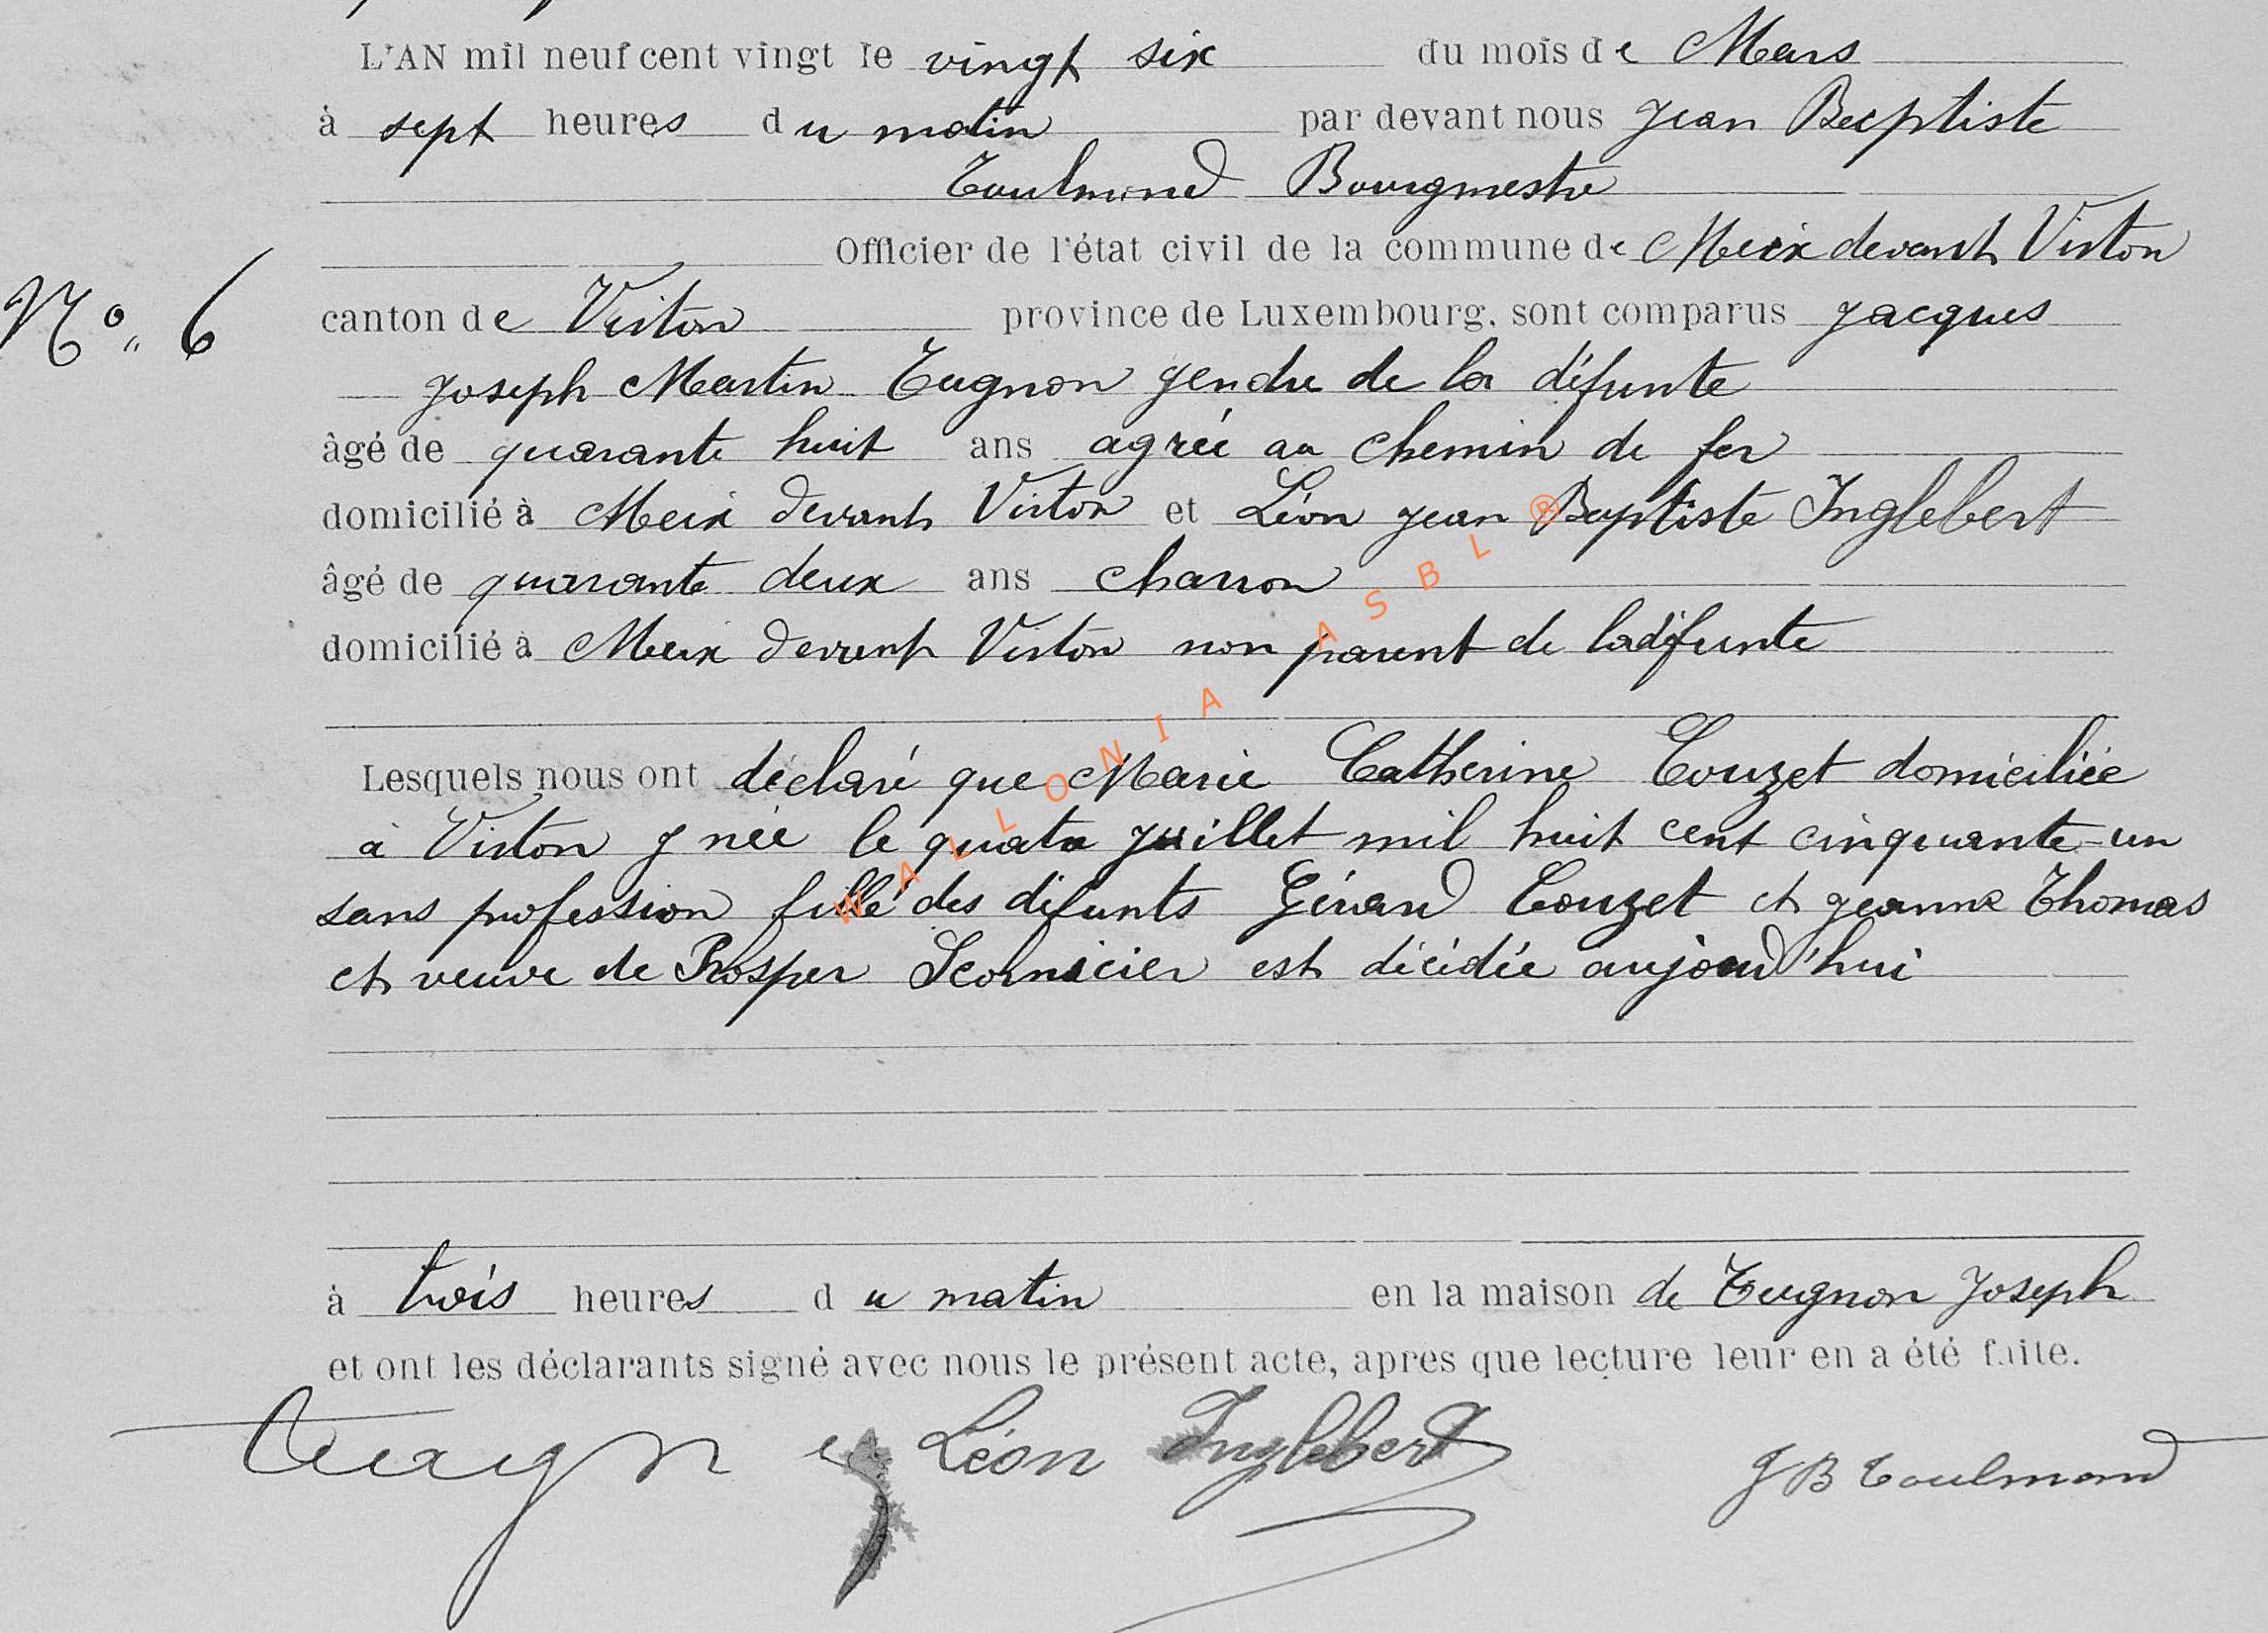 L'AN mil neuf cent vingt le vingt six du mois de Mars
à sept heures du matin par devant nous Jean Baptiste
Toulmond Bourgmestre
Officier de l'état civil de la commune de Meix devant Virton
N° 6
canton de Virton province de Luxembourg, sont comparus Jacques
Joseph Martin Tugnon gendre de la défunte
âgé de quarante huit ans agréé au chemin de fer
domicilié à Meix devant Virton et Léon Jean Baptiste Inglebert
âgé de quarante deux ans charron
domicilié à Meix devant Virton non parent de la défunte
Lesquels nous ont déclaré que Marie Catherine Touzet domiciliée
à Virton y née le quatre juillet mil huit cent cinquante-un
sans profession fille des défunts Gérard Touzet et Jeanne Thomas
et veuve de Prosper est décédée aujourd'hui
à trois heures du matin en la maison de Tugnon Joseph
et ont les déclarants signé avec nous le présent acte, apres que lecture leur en a été faite.
Léon Inglebert JB Toulmond
WALLONIA ASBL ®